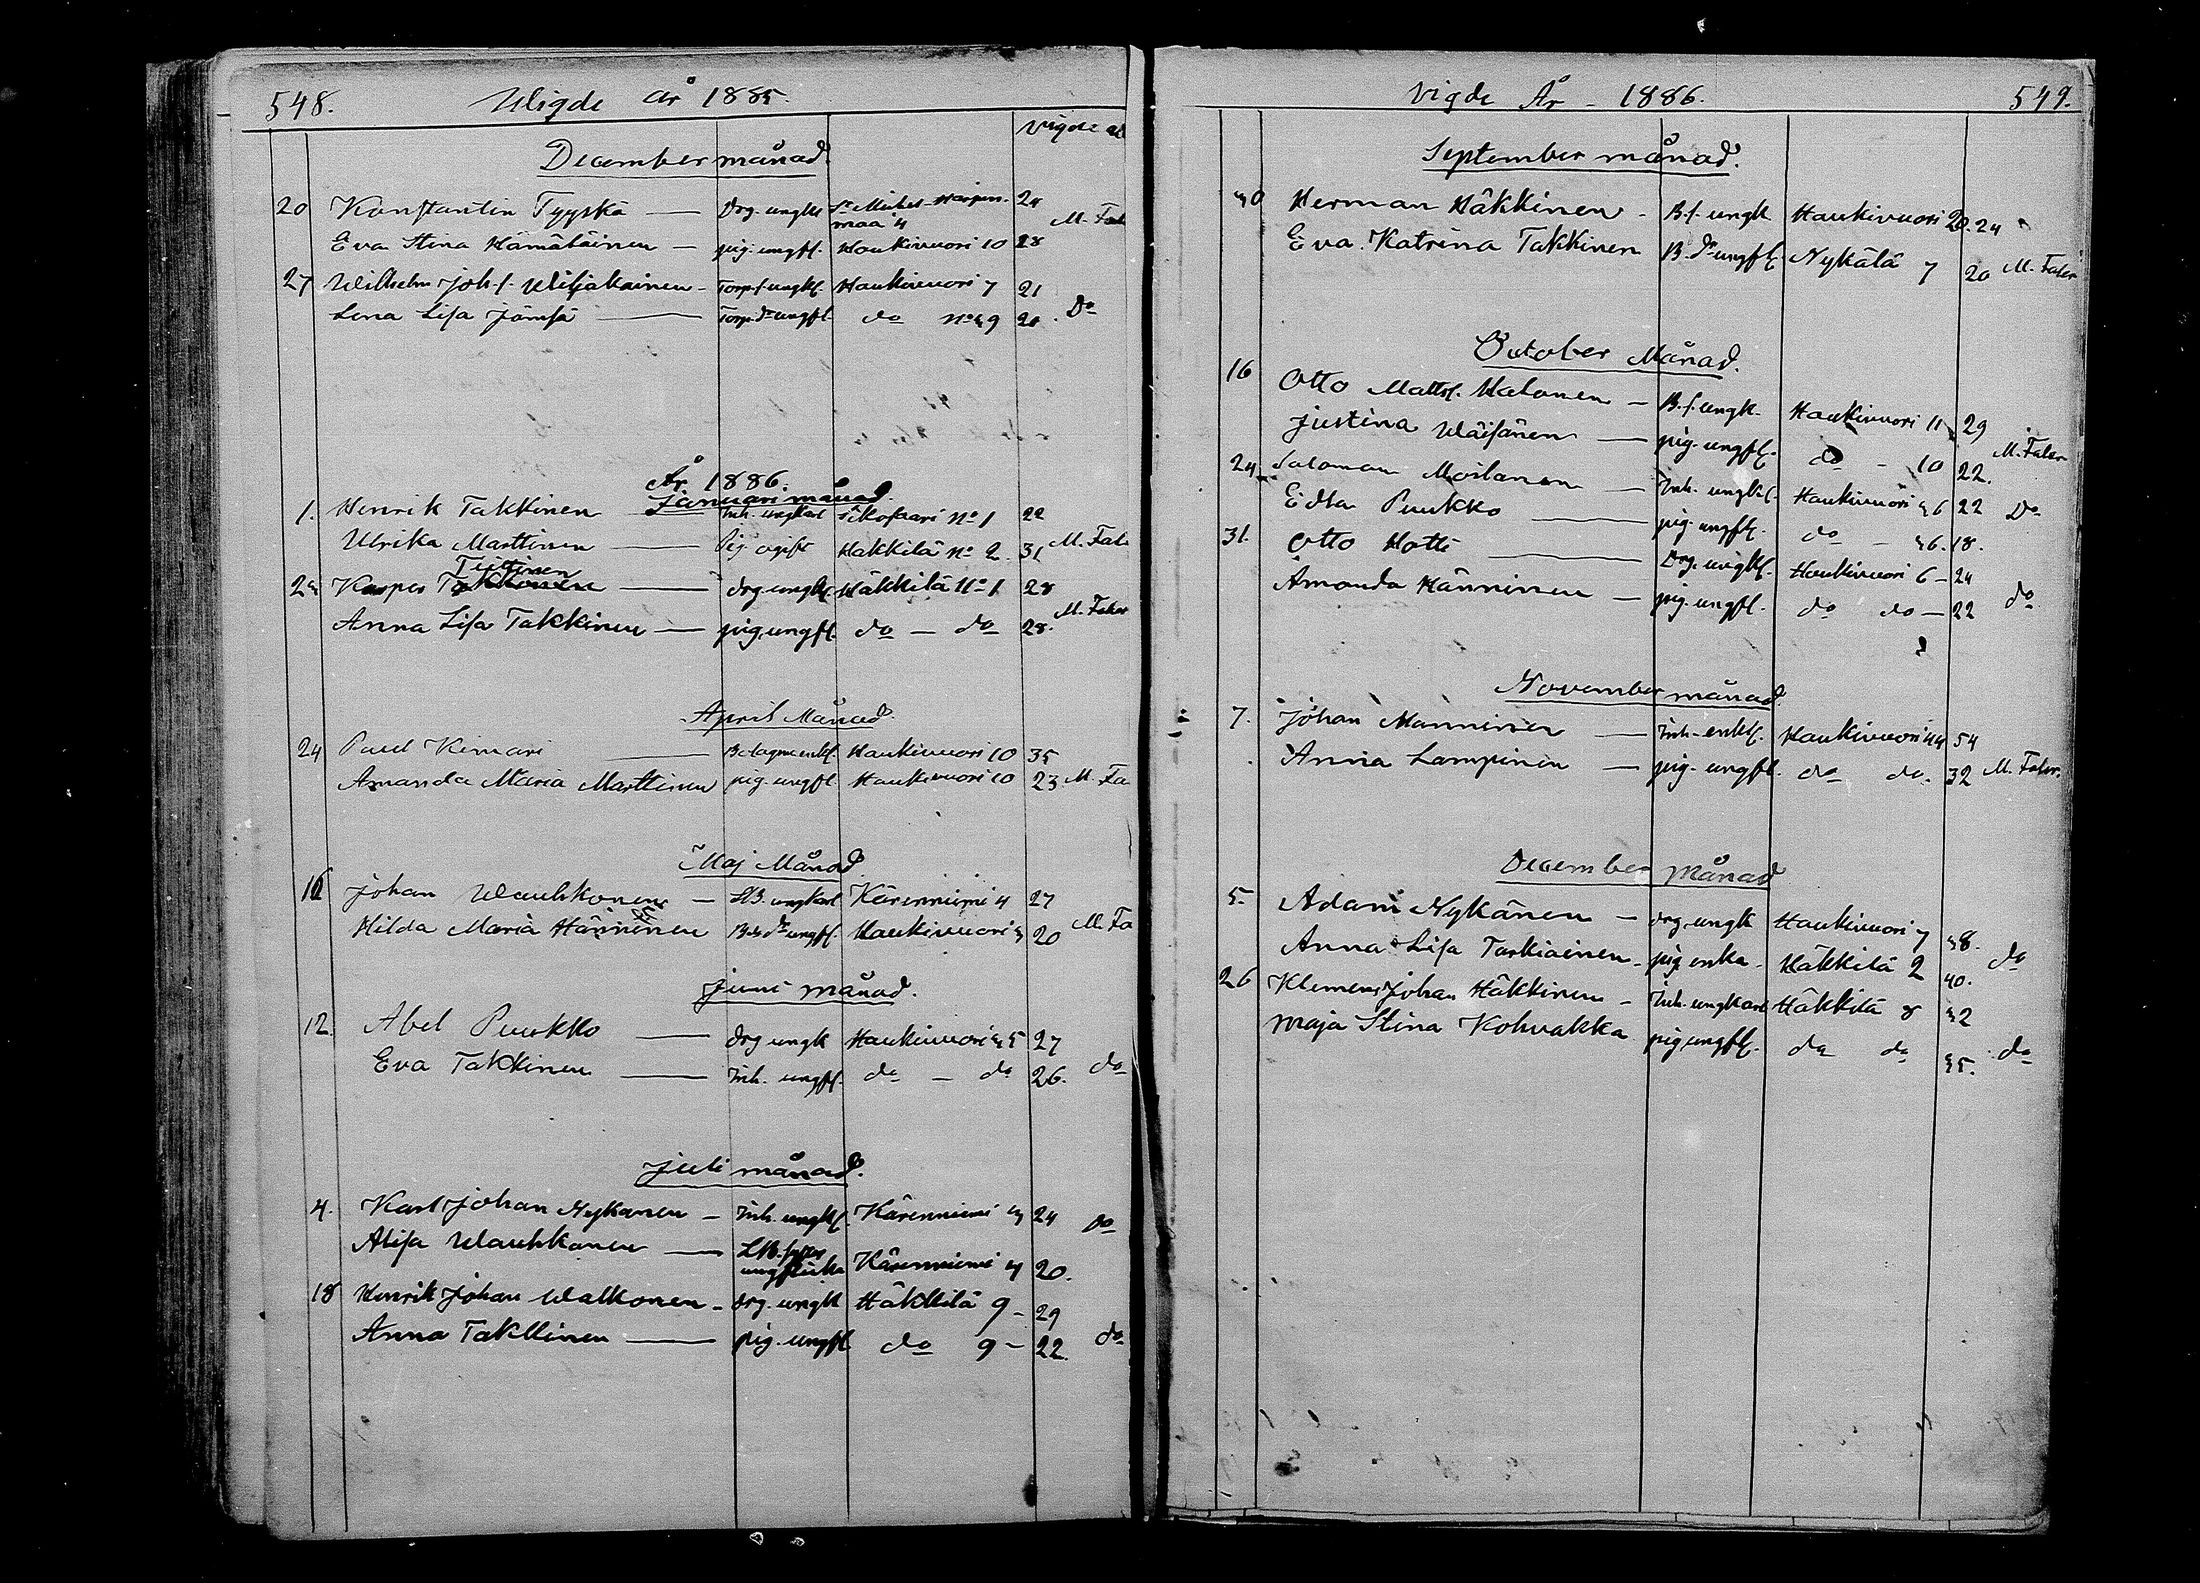 548. Wigde år 1885.
Vigde af
December månad.
20 Konstantin Tyyskä — Drg. ungk. St Michel Harjun-maa 4 24
M. Faler
Eva Stina Hämäläinen — pig. ungfl. Haukivuori 10 28
27 Wilhelm Joh.f. Wiljakainen - Torp.f. ungkl. Haukivuori 7 21
Lena Lisa Jämsä — Torp.dr ungfl. do No 39 20. Do
År 1886.
Januari månad.
1. Henrik Takkinen — Inh. ungkarl No 1 22
Ulrika Marttinen — Pig. ogift Häkkilä No 2. 31 M. Faler
Tiittinen
Kasper — drg. ungk. Häkkilä No 1 28
Anna Lisa Takkinen — pig. ungfl. do — do 28. M. Faler
April Månad.
24 Paul Kinnari — Haukivuori 10 35
Amanda Maria Marttinen pig. ungfl. Haukivuori 10 23 M. Fa
Maj Månad.
16 Johan Wauhkonen — LB. ungkarl Kärenniemi 4 27
Hilda Maria Hänninen B. dr ungfl. Haukivuori 3 20 M. Fa
Juni månad.
12. Abel Puukko — drg ungk Haukivuori 35 27
Eva Takkinen — Inh. ungfl. do — do 26. do
Juli månad.
4. Karl Johan Nykänen — Inh. ungkl. Kärenniemi 3 24 Do
Alisa Wauhkonen — LB. ungflicka Kärenniemi 4 20.
18 Henrik Johan Walkonen - drg. ungk Häkkilä 9 - 29
Anna Takkinen — pig. ungfl. do 9 - 22. do
Vigde År - 1886. 549.
September månad.
30 Herman Häkkinen - B.f. ungk Haukivuori 20. 24
Eva Katrina Takkinen B. dr ungfl. Nykälä 7 20 M. Faler
October Månad.
16 Otto Mattsf. Halonen — B.f. ungk. Haukivuori 11 29
Justina Wäisänen — pig. ungfl. do - 10 22. M. Faler
24 Salomon Moilanen — Inh. ungkl. Haukivuori 36 22
Edla Puukko — pig. ungfl. do - 36. 18. Do
31. Otto Hotti — Drg. ungkl. Haukivuori 6 - 24
Amanda Hänninen — pig. ungfl. do do — 22 do
November månad.
7. Johan Manninen — Inh. enkl. Haukivuori 44 54
Anna Lampinen — pig. ungfl. do do. 32 M. Faler.
December månad
5. Adam Nykänen — drg. ungk Haukivuori 7 38.
Anna Lisa Tarkiainen - pig enka - Häkkilä 2 40. do
26 Klemens Johan Häkkinen - Inh. ungkarl Häkkilä 8 32
Maja Stina Kohvakka pig ungfl. do do 35. do